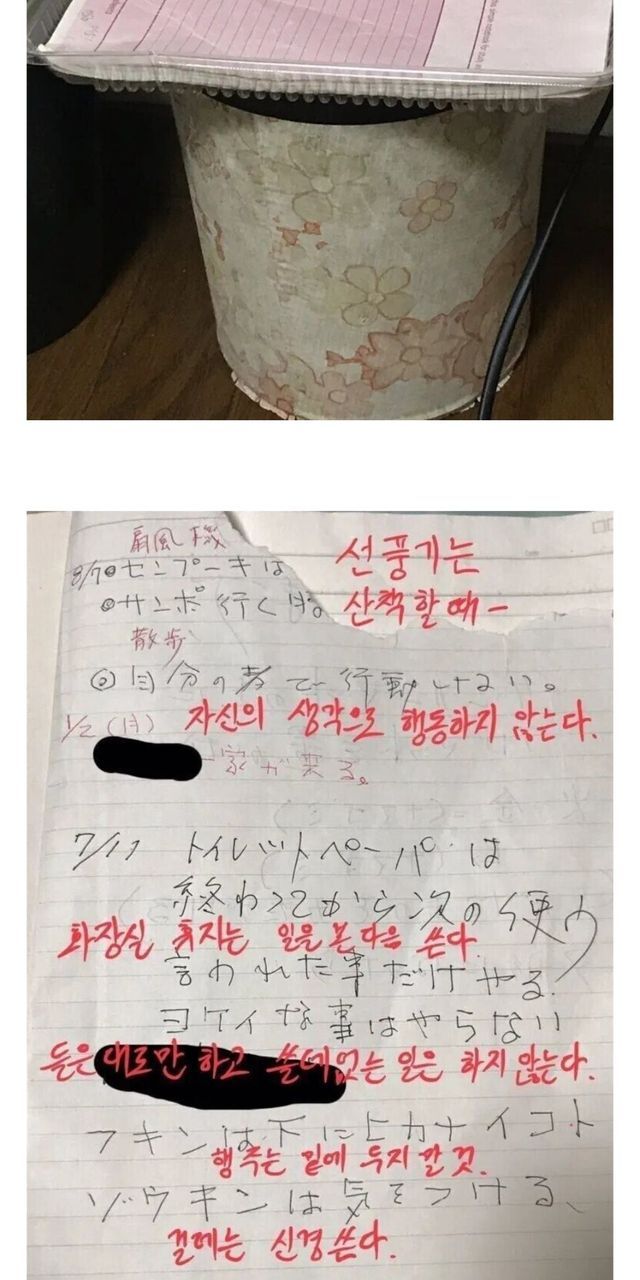 扇風機
선풍기는
8/7◎センプーキは
◎サンポ行く時。
산책할 때-
散歩
◎自分の考で行動しない。
자신의 생각으로 행동하지 않는다.
1/2(月)
一家が来る。
7/17 トイレットペーパーは
終わってから次の使う
화장실 휴지는 일을 본 다음 쓴다.
言われた事だけやる.
ヨケイな事はやらない
듣은 대로만 하고 쓸데없는 일은 하지 않는다.
フキンは下にヒカナイコト
행주는 밑에 두지 말 것.
ゾウキンは気をつける、
걸레는 신경쓴다.